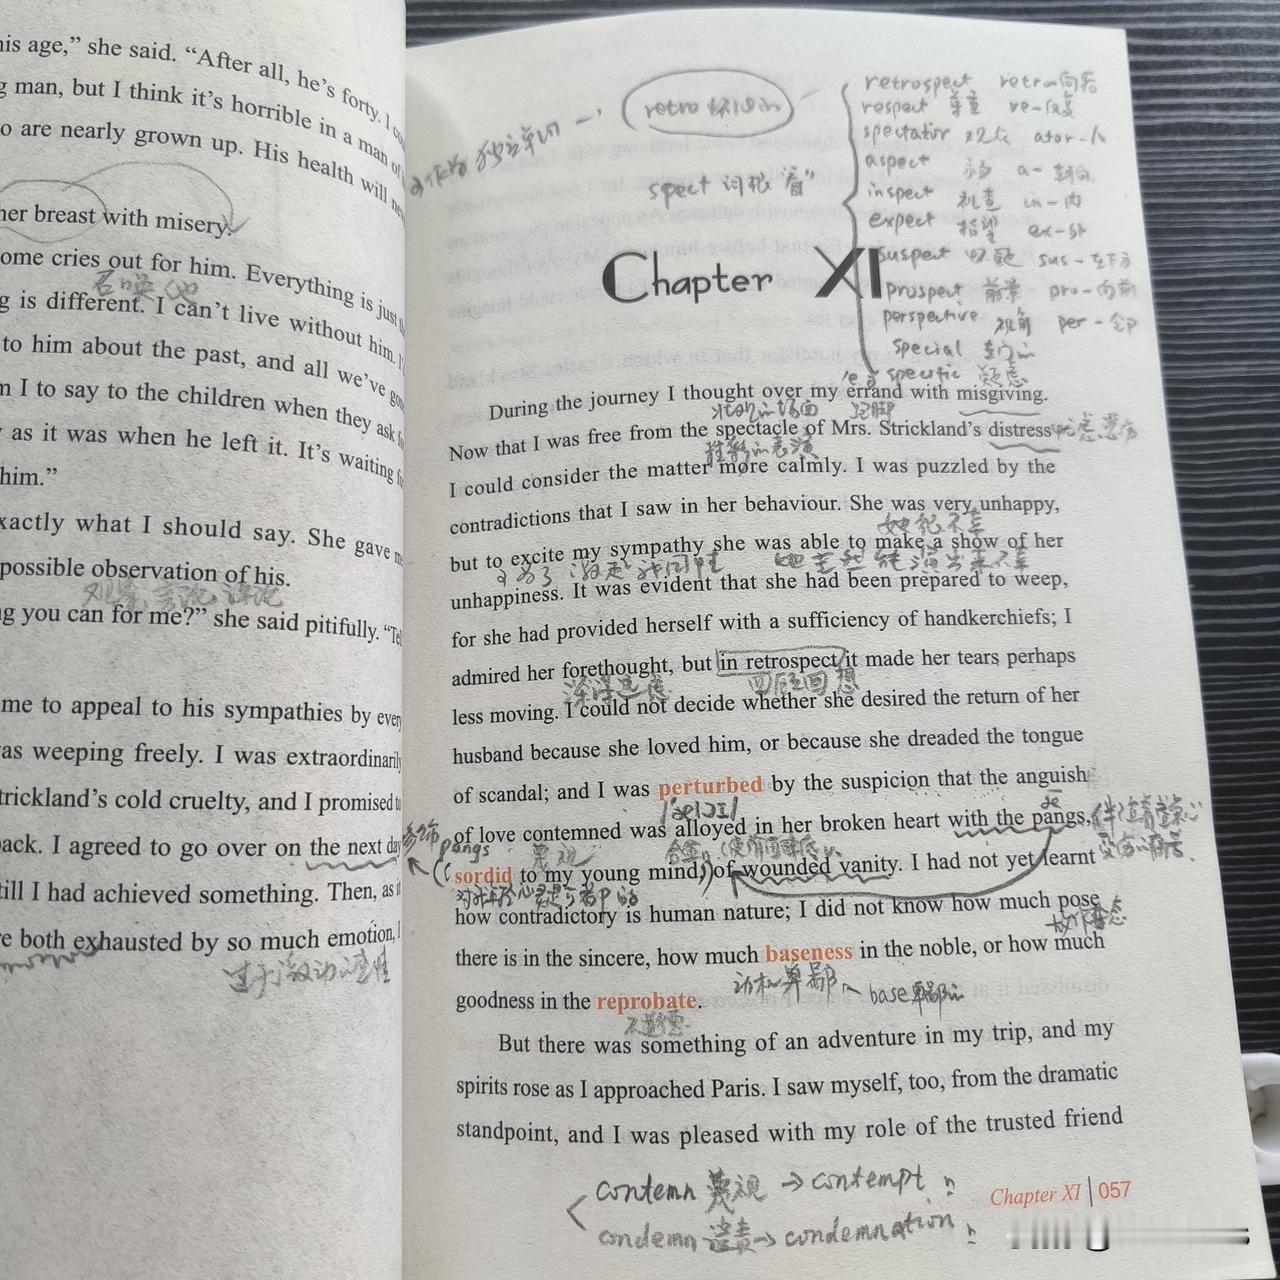 his age,” she said. “After all, he’s forty. I
g man, but I think it’s horrible in a man of
o are nearly grown up. His health will
her breast with misery.
ome cries out for him. Everything is just
召唤
g is different. I can’t live without him.
to him about the past, and all we’ve
I to say to the children when they ask
as it was when he left it. It’s waiting
him.”
xactly what I should say. She gave
possible observation of his.
g you can for me?” she said pitifully. “Tel
me to appeal to his sympathies by every
as weeping freely. I was extraordinarily
trickland’s cold cruelty, and I promised to
ack. I agreed to go over on the next day
till I had achieved something. Then, as
e both exhausted by so much emotion, I
过于激动
retro
spect 词根 “看”
retrospect retro-向后
respect 尊重 re-反复
spectator 观众 ator-人
aspect 方面 a-
inspect 检查 in-内
expect 指望 ex-外
suspect sus-在下方
prospect 前景 pro-向前
perspective 视角 per-
special
specific
Chapter XI
During the journey I thought over my errand with misgiving.
疑惑
跑腿
Now that I was free from the spectacle of Mrs. Strickland’s distress
I could consider the matter more calmly. I was puzzled by the
contradictions that I saw in her behaviour. She was very unhappy,
她很不幸
but to excite my sympathy she was able to make a show of her
为了 激起 我同情
unhappiness. It was evident that she had been prepared to weep,
for she had provided herself with a sufficiency of handkerchiefs; I
admired her forethought, but in retrospect it made her tears perhaps
深谋远虑
回顾回想
less moving. I could not decide whether she desired the return of her
husband because she loved him, or because she dreaded the tongue
of scandal; and I was perturbed by the suspicion that the anguish
of love contemned was alloyed in her broken heart with the pangs,
pangs
蔑视
sordid to my young mind, of wounded vanity. I had not yet learnt
how contradictory is human nature; I did not know how much pose
there is in the sincere, how much baseness in the noble, or how much
动机卑鄙
base 卑鄙的
goodness in the reprobate.
不道德
But there was something of an adventure in my trip, and my
spirits rose as I approached Paris. I saw myself, too, from the dramatic
standpoint, and I was pleased with my role of the trusted friend
contemn 蔑视 → contempt n
condemn 谴责 → condemnation n
Chapter XI | 057